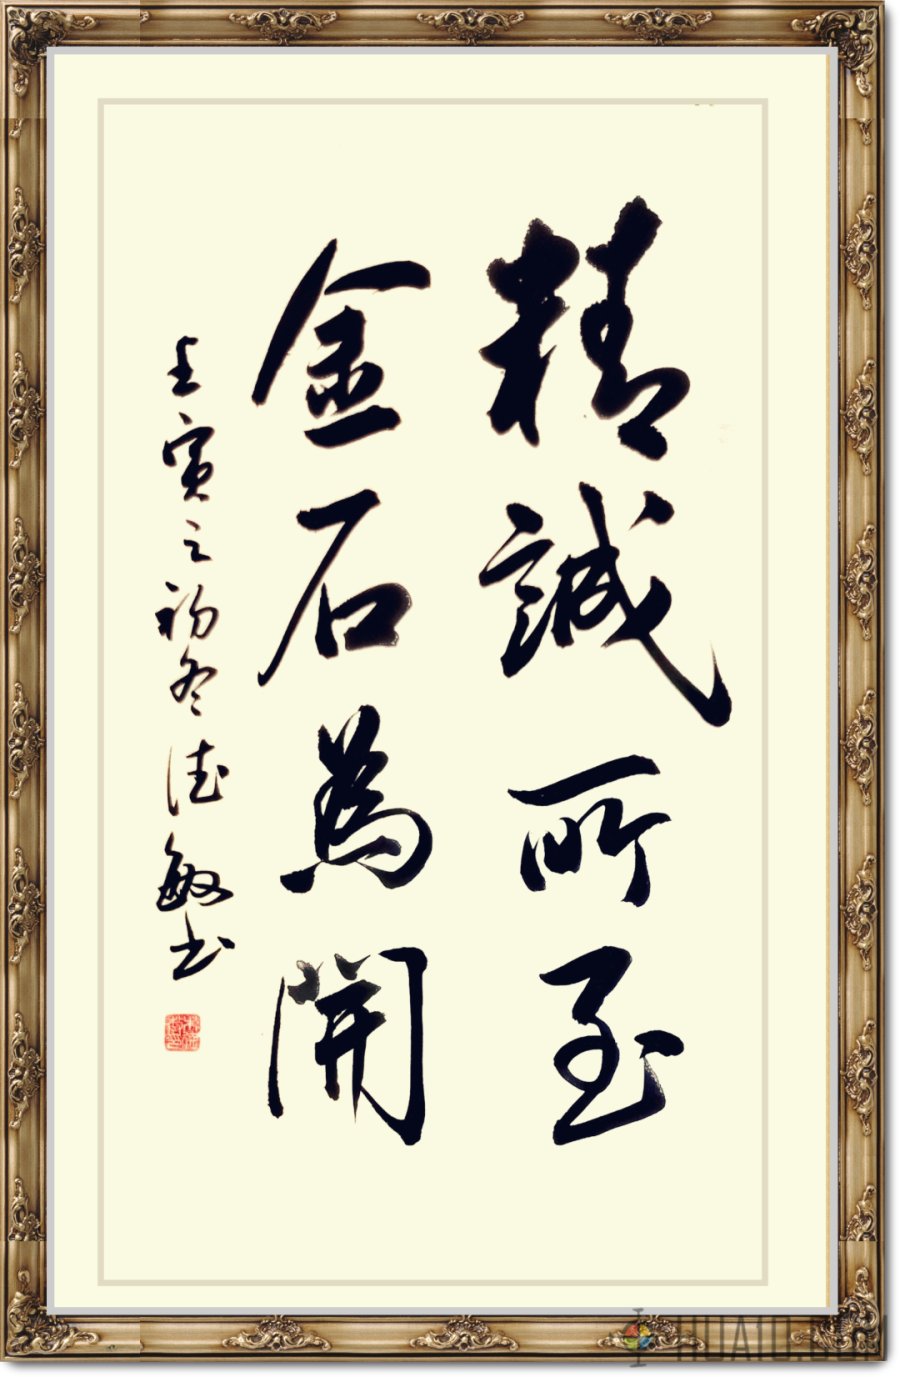 精誠所至
金石為開
壬寅之初冬德敏書
HUA10.COM